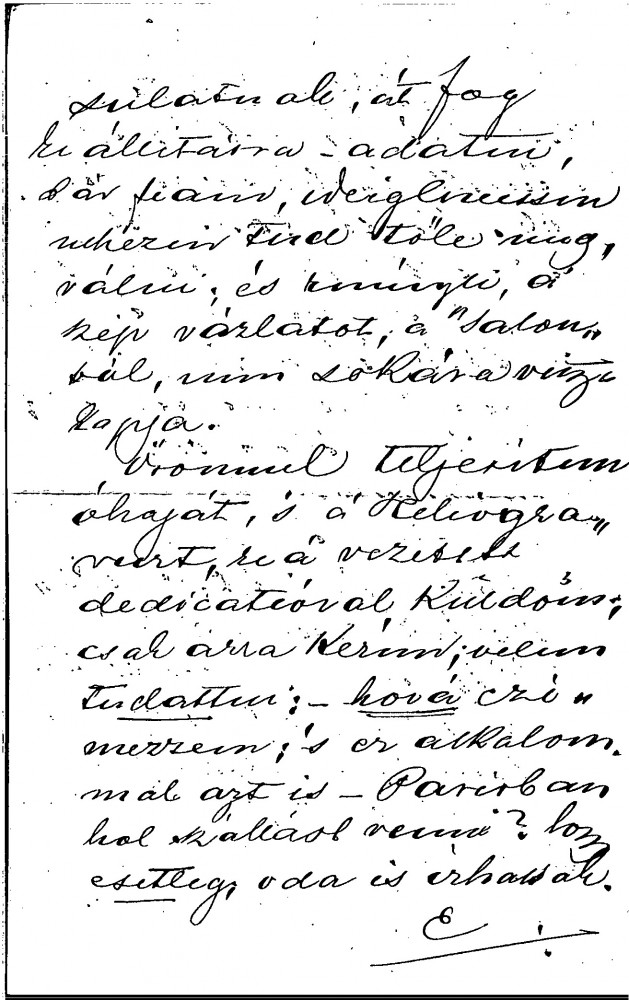 sulatnak, át fog
kiállitásra – adatni,
bár fiam,
nehezen tud tőle meg„
válni; és reményli, a
kép vázlatot, a "Salon„
ból, nem sokára vissza
kapja.
Örömmel teljesitem
óhaját, 's a Heliogra„
veurt, reá vezetett
dedicatióval, küldöm;
csak arra kérem; velem
tudattni; – hová czi„
mezzem; 's ez alkalom„
mal azt is – Parisban
hol szállást venni? hogy
esetleg, oda is irhassak.
E